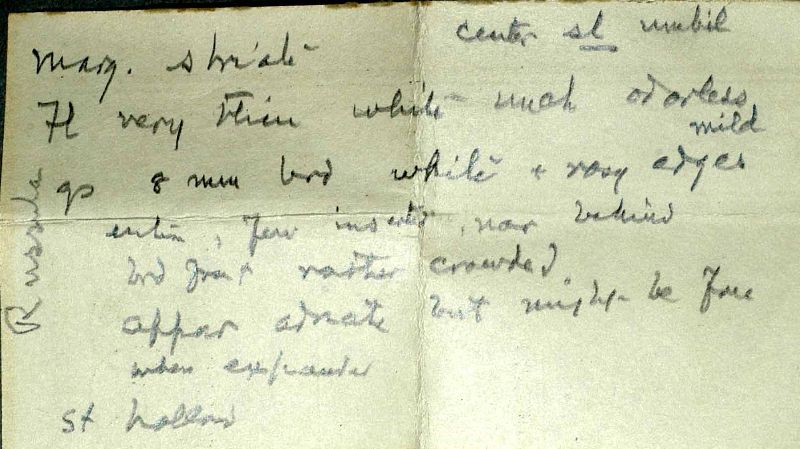 center sl umbil
marg. striate
Fl very thin white weak odorless
mild
gs 8 mm brd white + rosy edges
entire, few inserted, nar behind
brd front rather crowded
appar adnate but might be free
when expanded
st hollow
Russula